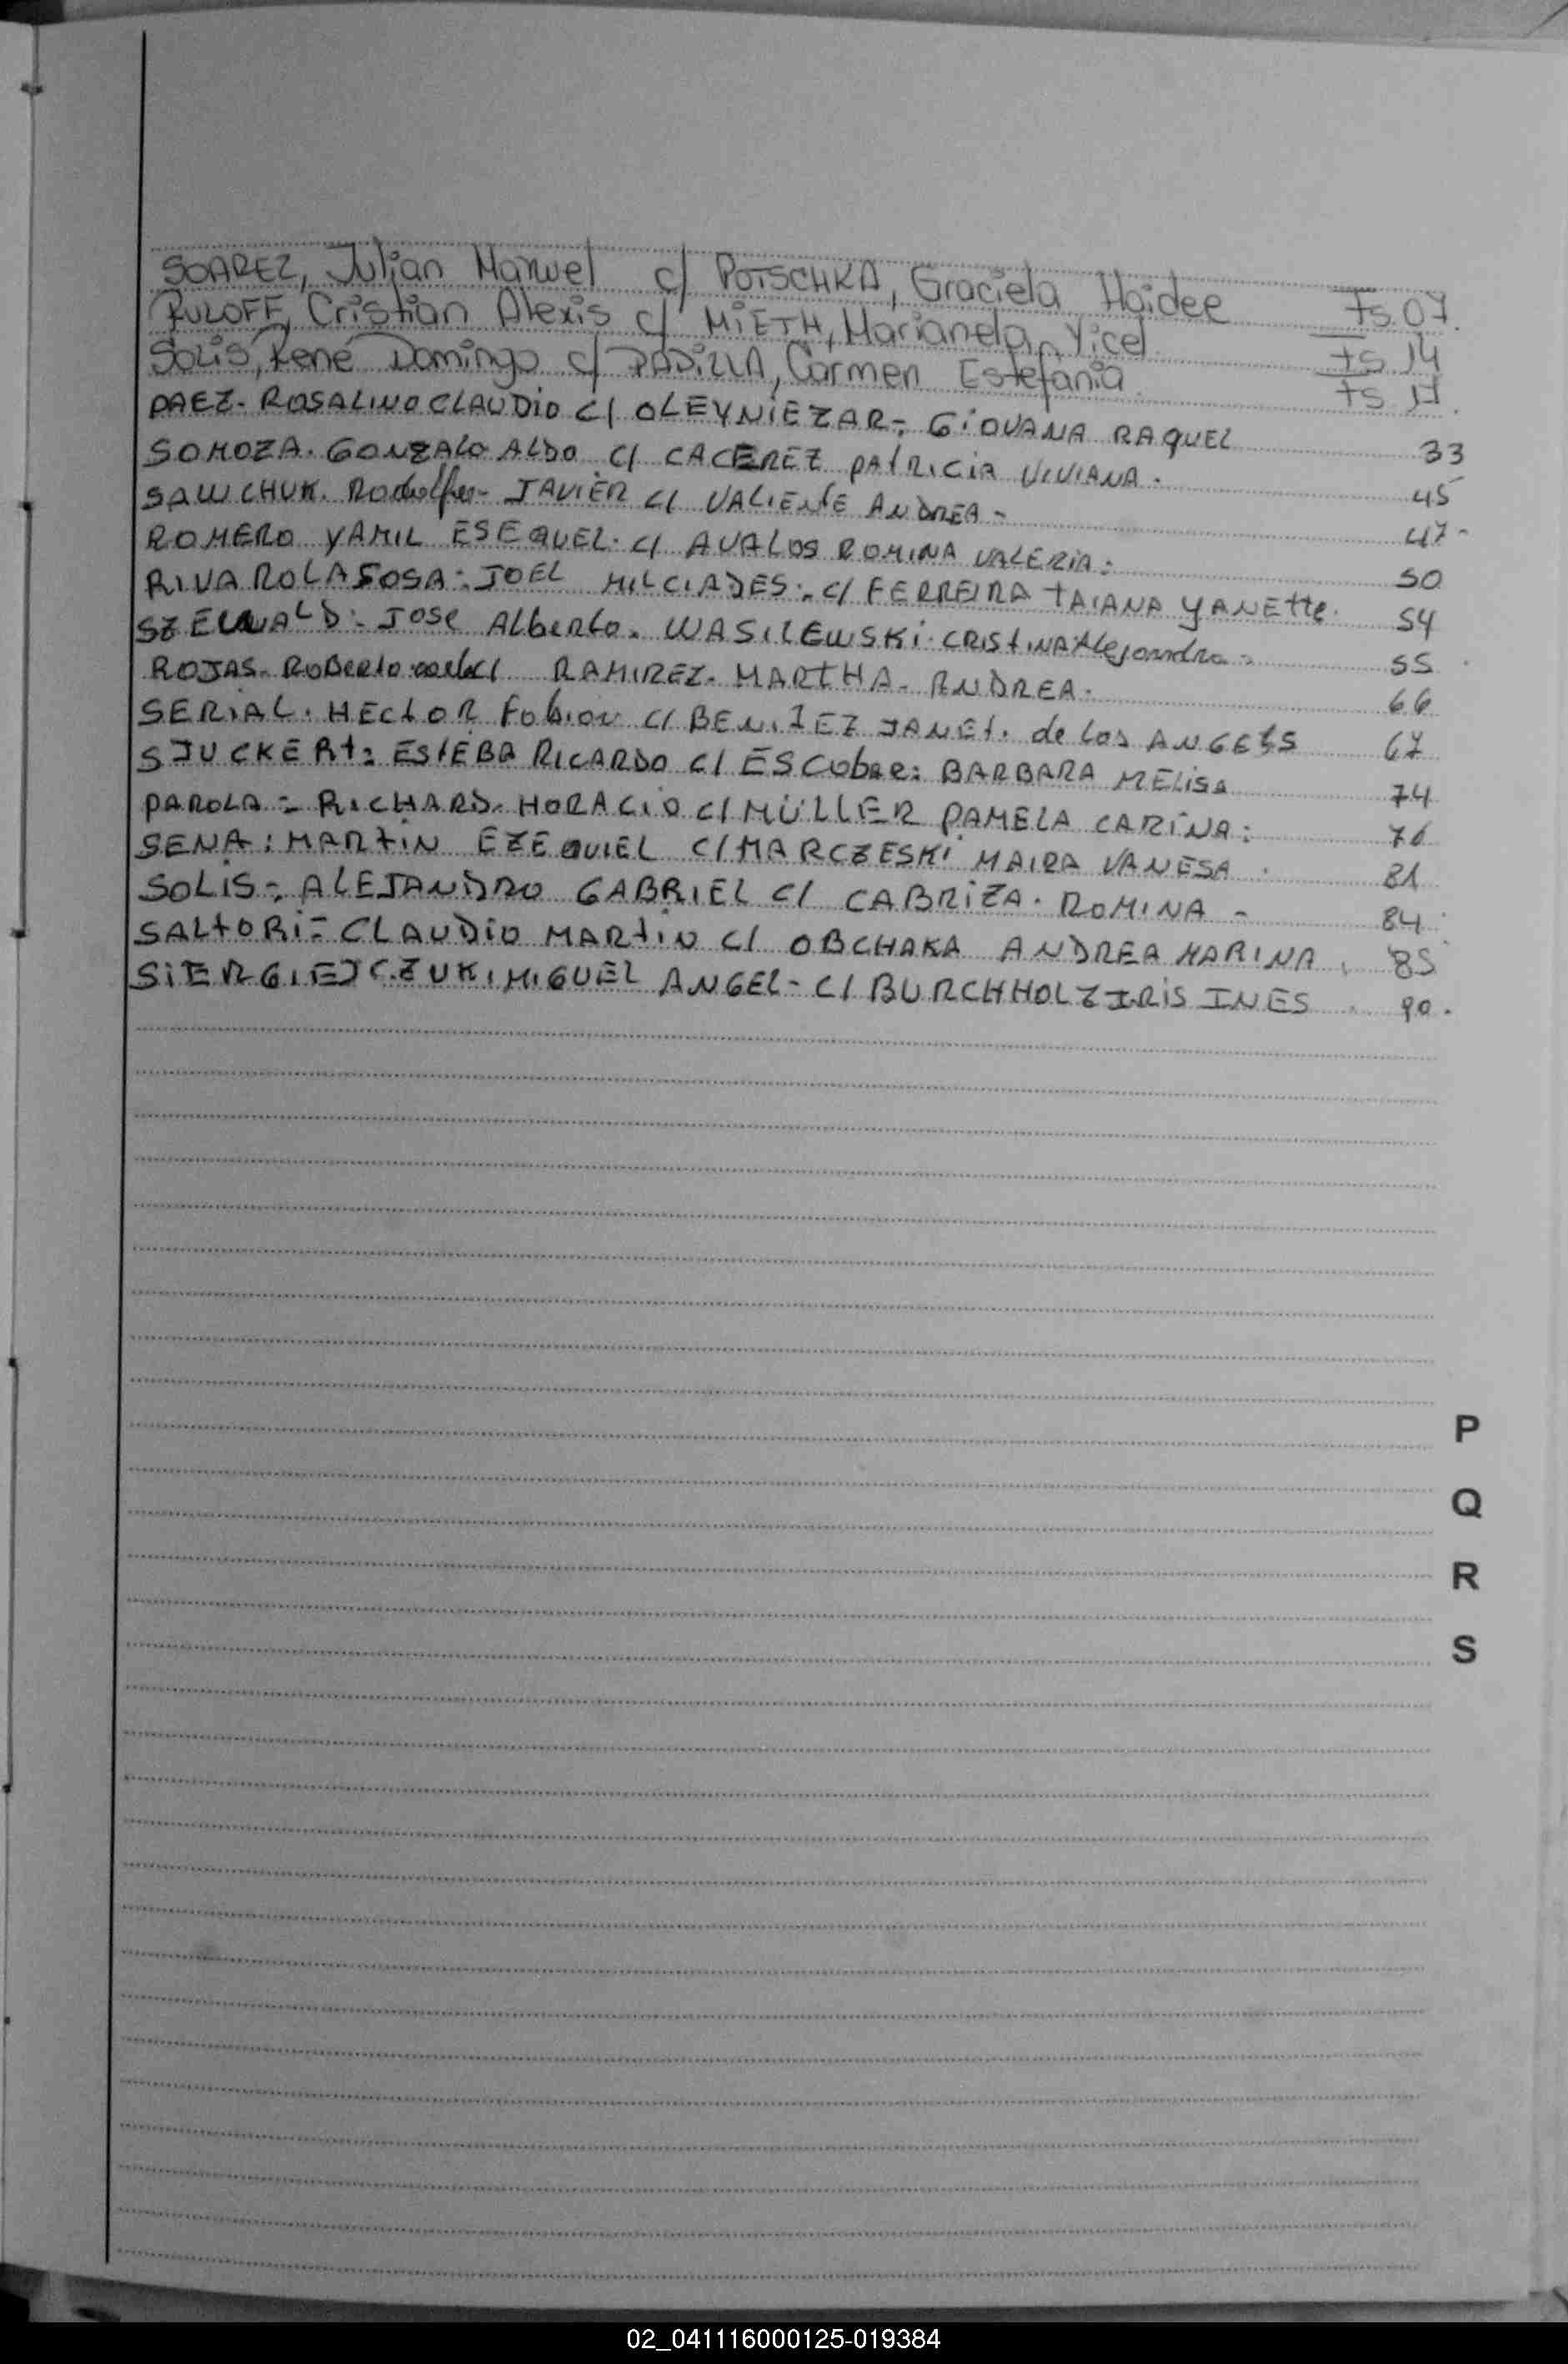 SOAREZ, Julian Manuel c/ POTSCHKA, Graciela Haidee Fs. 07.
RULOFF, Cristian Alexis c/ MiETH, Marianela Yicel. Fs. 14
Solis, René Domingo c/ PADiLLA, Carmen Estefania. Fs 17.
PAEZ- ROSALINO CLAUDiO C/ OLEYNiEZAR-, GiOVANA RAQUEL 33
SOMOZA. GONZALO ALDO C/ CACEREZ PATRICIA VIVIANA. 45
SAWCHUK. Rodolfo- JAVIER C/ VALIENTE ANDREA- 47-
ROMERO YAMIL ESEQUEL. C/ AVALOS ROMINA VALERIA: 50
RIVAROLA SOSA-. JOEL MILCIADES-. C/ FERREIRA TAIANA YANETTE. 54
JOSE Alberto. WASILEWSKi. CRISTINA Alejandra- 55
ROJAS- ROBERTO C/ RAMIREZ. MARTHA- ANDREA. 66
SERiAL. HECTOR Fabian C/ BENITEZ JANET. de Los ANGELES 67
SJUCKERT: ESTEBA RICARDO C/ ESCobar: BARBARA MELisa 74
PAROLA- RICHARD. HORACIO C/ MÜLLER PAMELA CARiNA: 76
SENA: MARTiN EZEQUIEL C/ MARCZESKi MAIRA VANESA. 81
SOLIS-. ALEJANDRO GABRIEL C/ CABRiZA. ROMINA - 84
SALTORi- CLAUDiO MARTiN C/ OBCHAKA ANDREA MARINA. 85
SiERGIEJCZUK. MIGUEL ANGEL- C/ BURCHHOLZ IRiS INES 90.
P
Q
R
S
02_041116000125-019384